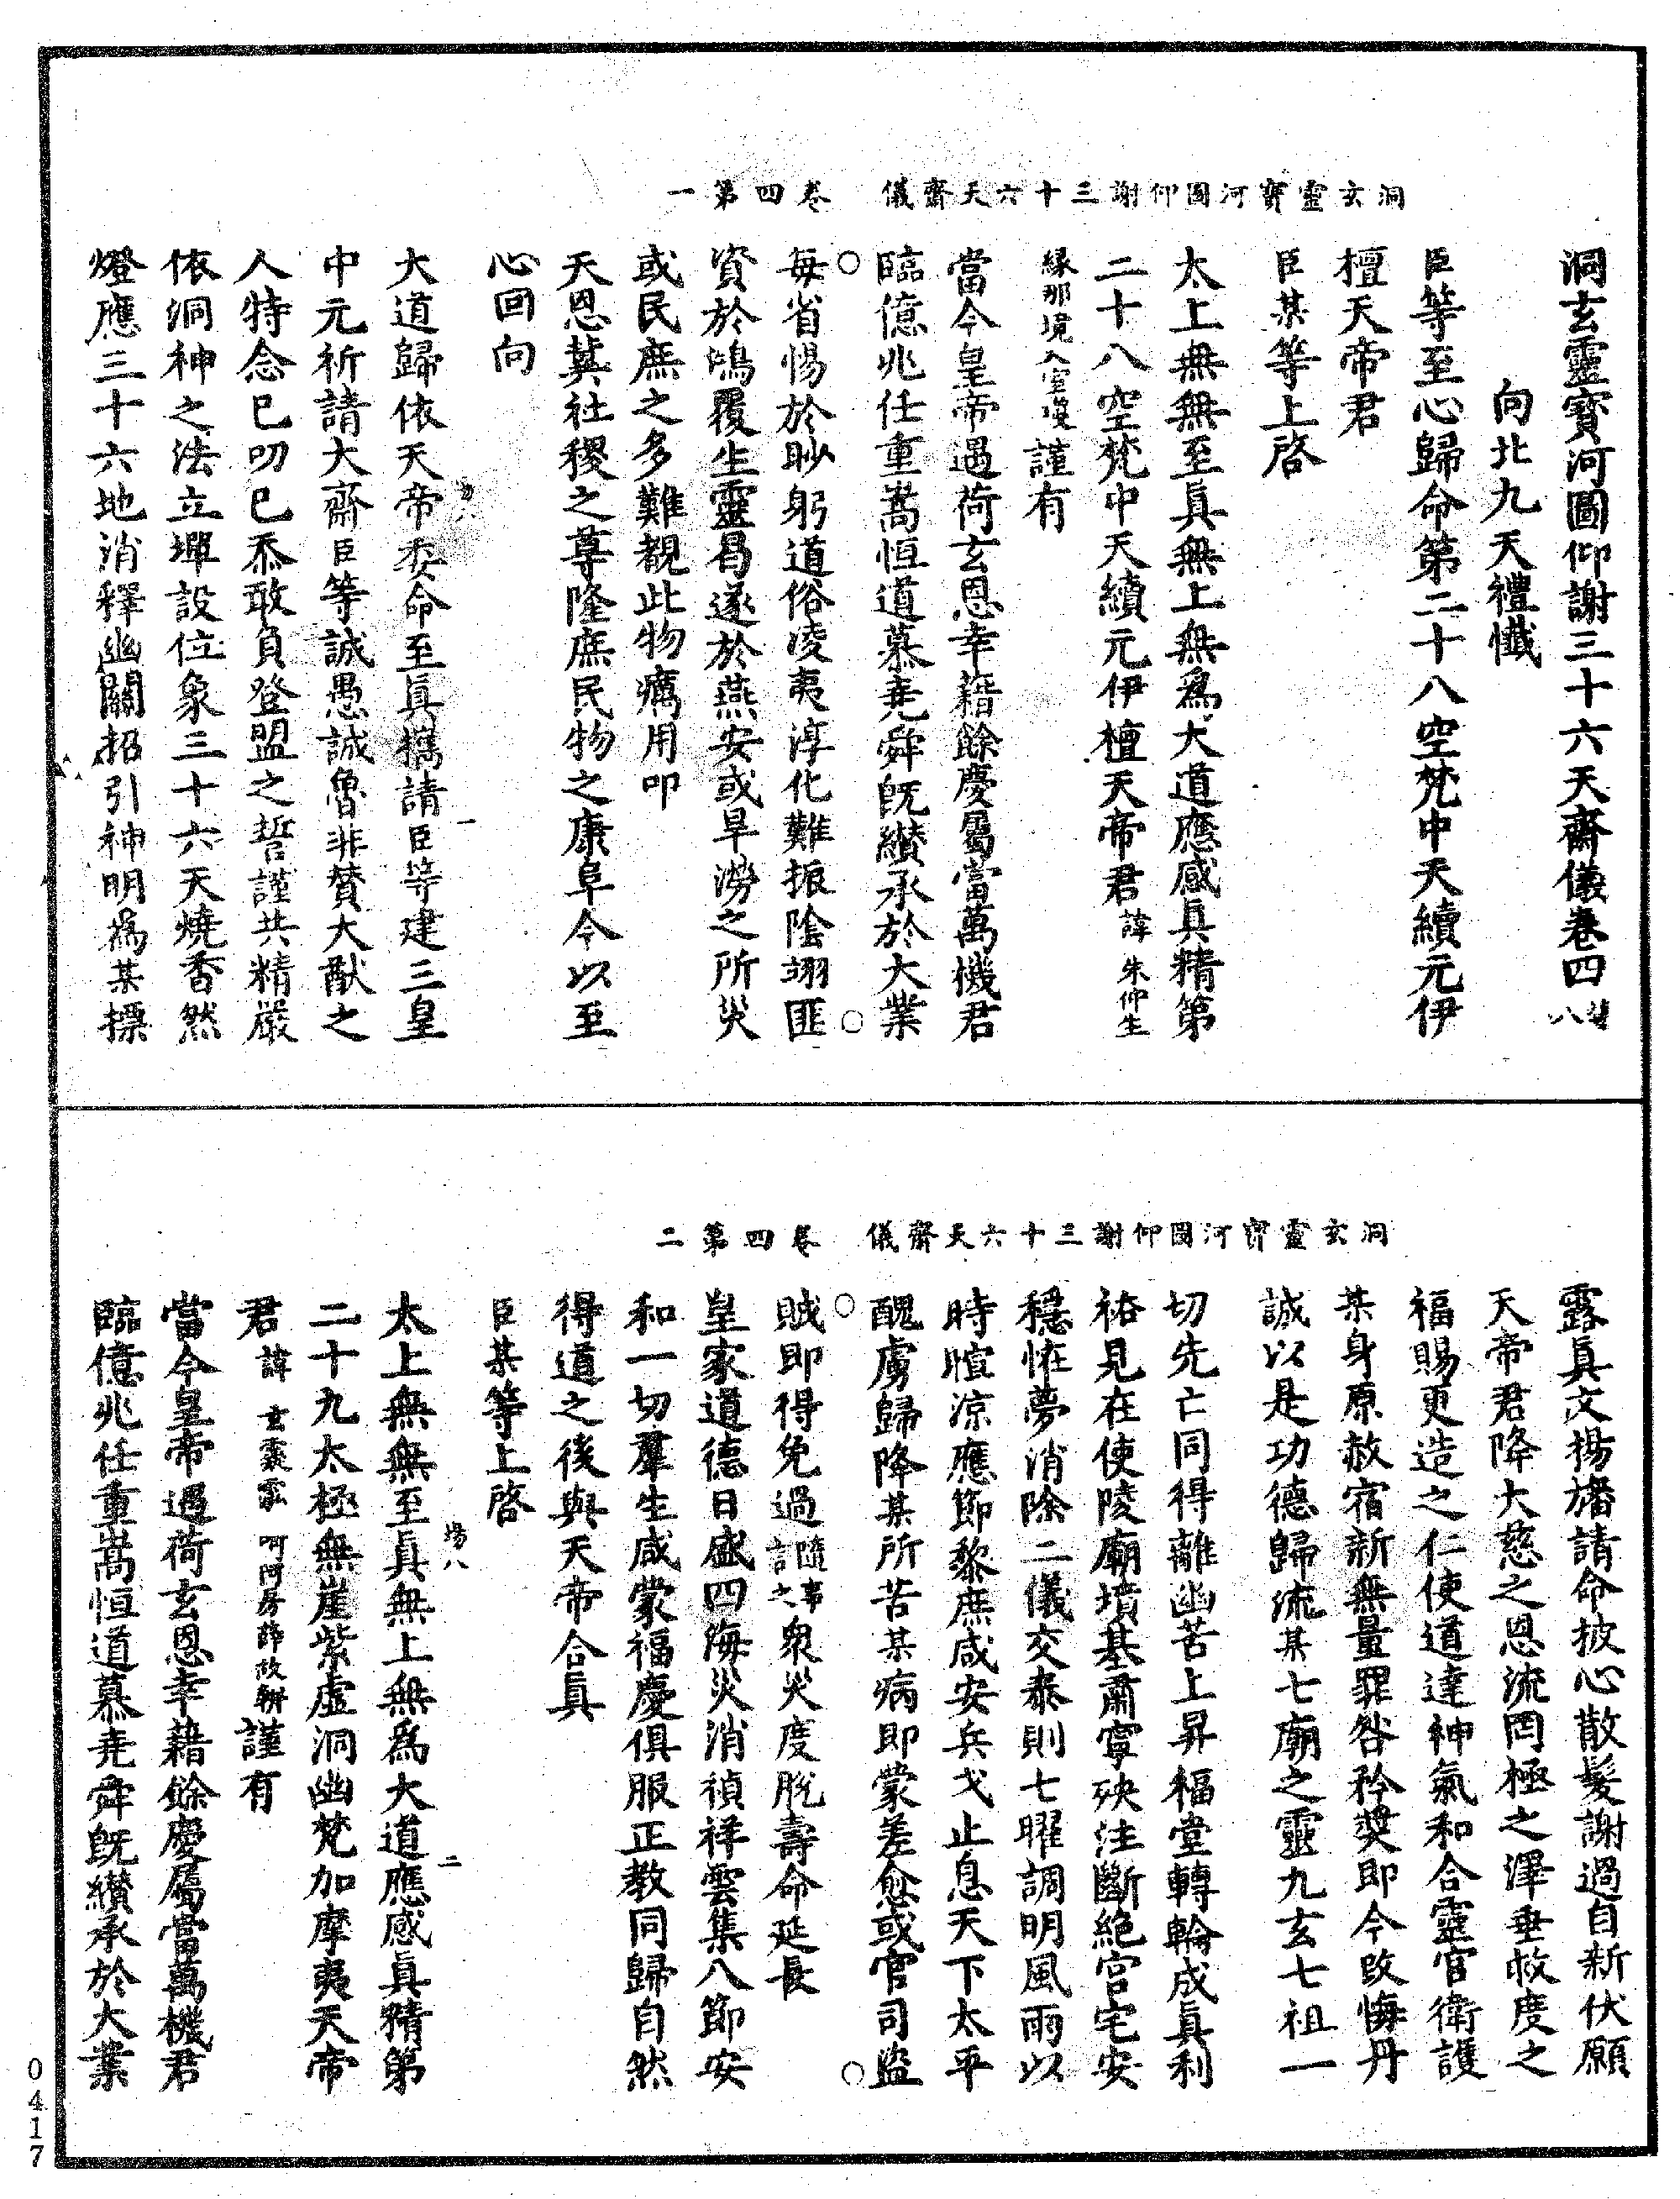 洞玄靈寶河圖仰謝三十六天齋儀　卷四第一
洞玄靈寶河圖仰謝三十六天齋儀卷四　八
向北九天禮懺
臣等至心歸命第二十八空梵中天續元伊
檀天帝君
臣某等上啓
太上無無至眞無上無爲大道應感眞精第
二十八空梵中天續元伊檀天帝君諱朱仰生
緣那境入室謹有
當今皇帝遇荷玄恩幸藉餘慶屬當萬機君
臨億兆任重嵩恒道慕堯舜旣纘承於大業
每省惕於眇躬道俗凌夷淳化難振陰翊匪
資於鴻覆生靈曷遂於燕安或旱澇之所災
或民庶之多難覩此物癘用叩
天恩冀社稷之尊隆庶民物之康阜今以至
心回向
大道歸依天帝委命至眞攜請臣等建三皇
中元祈請大齋臣等誠愚誠魯非贊大猷之
人特念已叨已忝敢負登盟之誓謹共精嚴
依洞神之法立壇設位象三十六天燒香然
燈應三十六地消釋幽關招引神明爲某摽
洞玄靈寶河圖仰謝三十六天齋儀　卷四第二
露眞文揚旛請命披心散髮謝過自新伏願
天帝君降大慈之恩流罔極之澤垂救度之
福賜更造之仁使道達神氣和合靈官衛護
某身原赦宿新無量罪咎矜獎即今改悔丹
誠以是功德歸流某七廟之靈九玄七祖一
切先亡同得離幽苦上昇福堂轉輪成眞利
祐見在使陵廟墳基肅寧殃注斷絕宮宅安
穩恠夢消除二儀交泰則七曜調明風雨以
時暄涼應節黎庶咸安兵戈止息天下太平
醜虜歸降某所苦某病即蒙差愈或官司盜
賊即得免過隨事言之衆災度脫壽命延長
皇家道德日盛四海災消禎祥雲集八節安
和一切羣生咸蒙福慶俱服正教同歸自然
得道之後與天帝合眞
臣某等上啓
場八　二
太上無無至眞無上無爲大道應感眞精第
二十九太極無崖紫虛洞幽梵加摩夷天帝
君諱玄　呵阿房謹有
當今皇帝遇荷玄恩幸藉餘慶屬當萬機君
臨億兆任重嵩恒道慕堯舜旣纘承於大業
0417